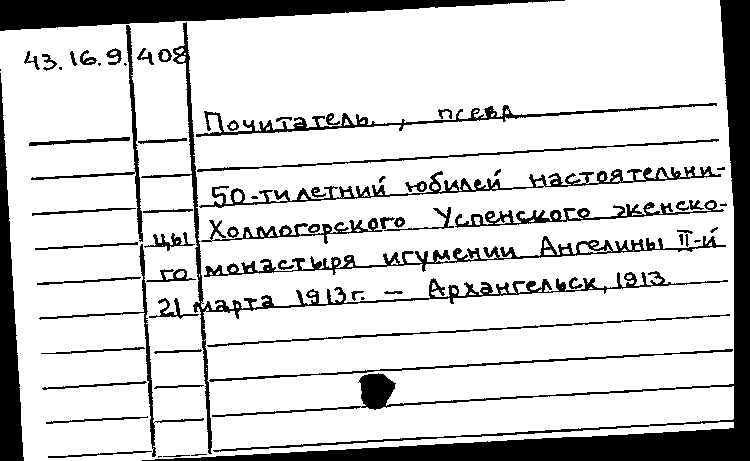 43.16.9. 408
Почитатель, псевд
50-тилетний юбилей настоятельни-
цы Холмогорского Успенского женско-
го монастыря игумении Ангелины II-й
21 марта 1913 г. — Архангельск, 1913.